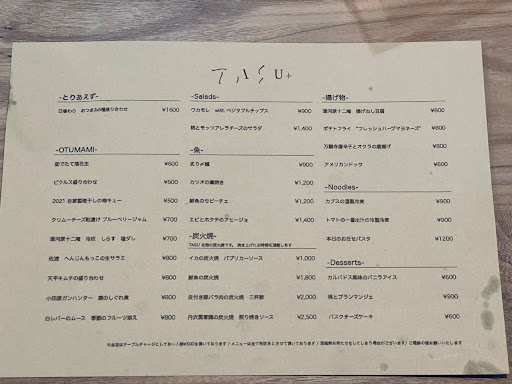 TASU+
-とりあえず-
日替わり おつまみ5種盛り合わせ ¥1600
-OTUMAMI-
茹でたて落花生 ¥600
ピクルス盛り合わせ ¥500
2021 自家製梅干しの梅キュー ¥500
クリームチーズ粕漬け ブルーベリージャム ¥700
湯河原十二庵 冷奴 しらす 塩ダレ ¥700
佐渡 へんじんもっこの生サラミ ¥800
天平キムチの盛り合わせ ¥800
小田原ガンハンター 鹿のしぐれ煮 ¥800
白レバーのムース 季節のフルーツ添え ¥800
-Salads-
ワカモレ with ベジタブルチップス ¥900
桃とモッツァレラチーズのサラダ ¥1,400
-魚-
炙り〆鯖 ¥900
カツオの藁焼き ¥1,200
鮮魚のセビーチェ ¥1,200
エビとホタテのアヒージョ ¥1,400
-炭火焼-
TASU 名物の炭火焼です。 焼き上げにお時間を頂戴します
イカの炭火焼 パプリカソース ¥1,000
鮮魚の炭火焼 ¥1,800
皮付き豚バラ肉の炭火焼 三杯酢 ¥2,000
丹沢黒軍鶏の炭火焼 照り焼きソース ¥2,500
-揚げ物-
湯河原十二庵 揚げ出し豆腐 ¥800
ポテトフライ “フレッシュハーブマヨネーズ” ¥800
万願寺唐辛子とオクラの唐揚げ ¥800
アメリカンドッグ ¥800
-Noodles-
カブスの温製冷麦 ¥900
トマトの一番出汁の冷製冷麦 ¥900
本日のお任せパスタ ¥1200
-Desserts-
カルバドス風味のバニラアイス ¥600
桃とブランマンジェ ¥900
バスクチーズケーキ ¥600